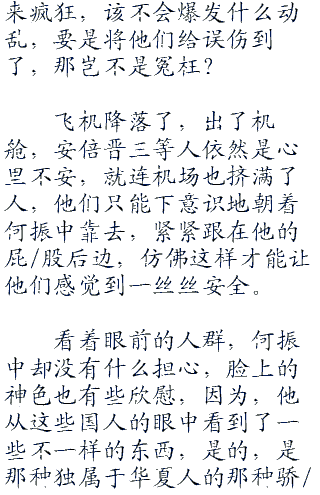 来疯狂，该不会爆发什么动
乱，要是将他们给误伤到
了，那岂不是冤枉？
飞机降落了，出了机
舱，安倍晋三等人依然是心
里不安，就连机场也挤满了
人，他们只能下意识地朝着
何振中靠去，紧紧跟在他的
屁/股后边，仿佛这样才能让
他们感觉到一丝丝安全。
看着眼前的人群，何振
中却没有什么担心，脸上的
神色也有些欣慰，因为，他
从这些国人的眼中看到了一
些不一样的东西，是的，是
那种独属于华夏人的那种骄/